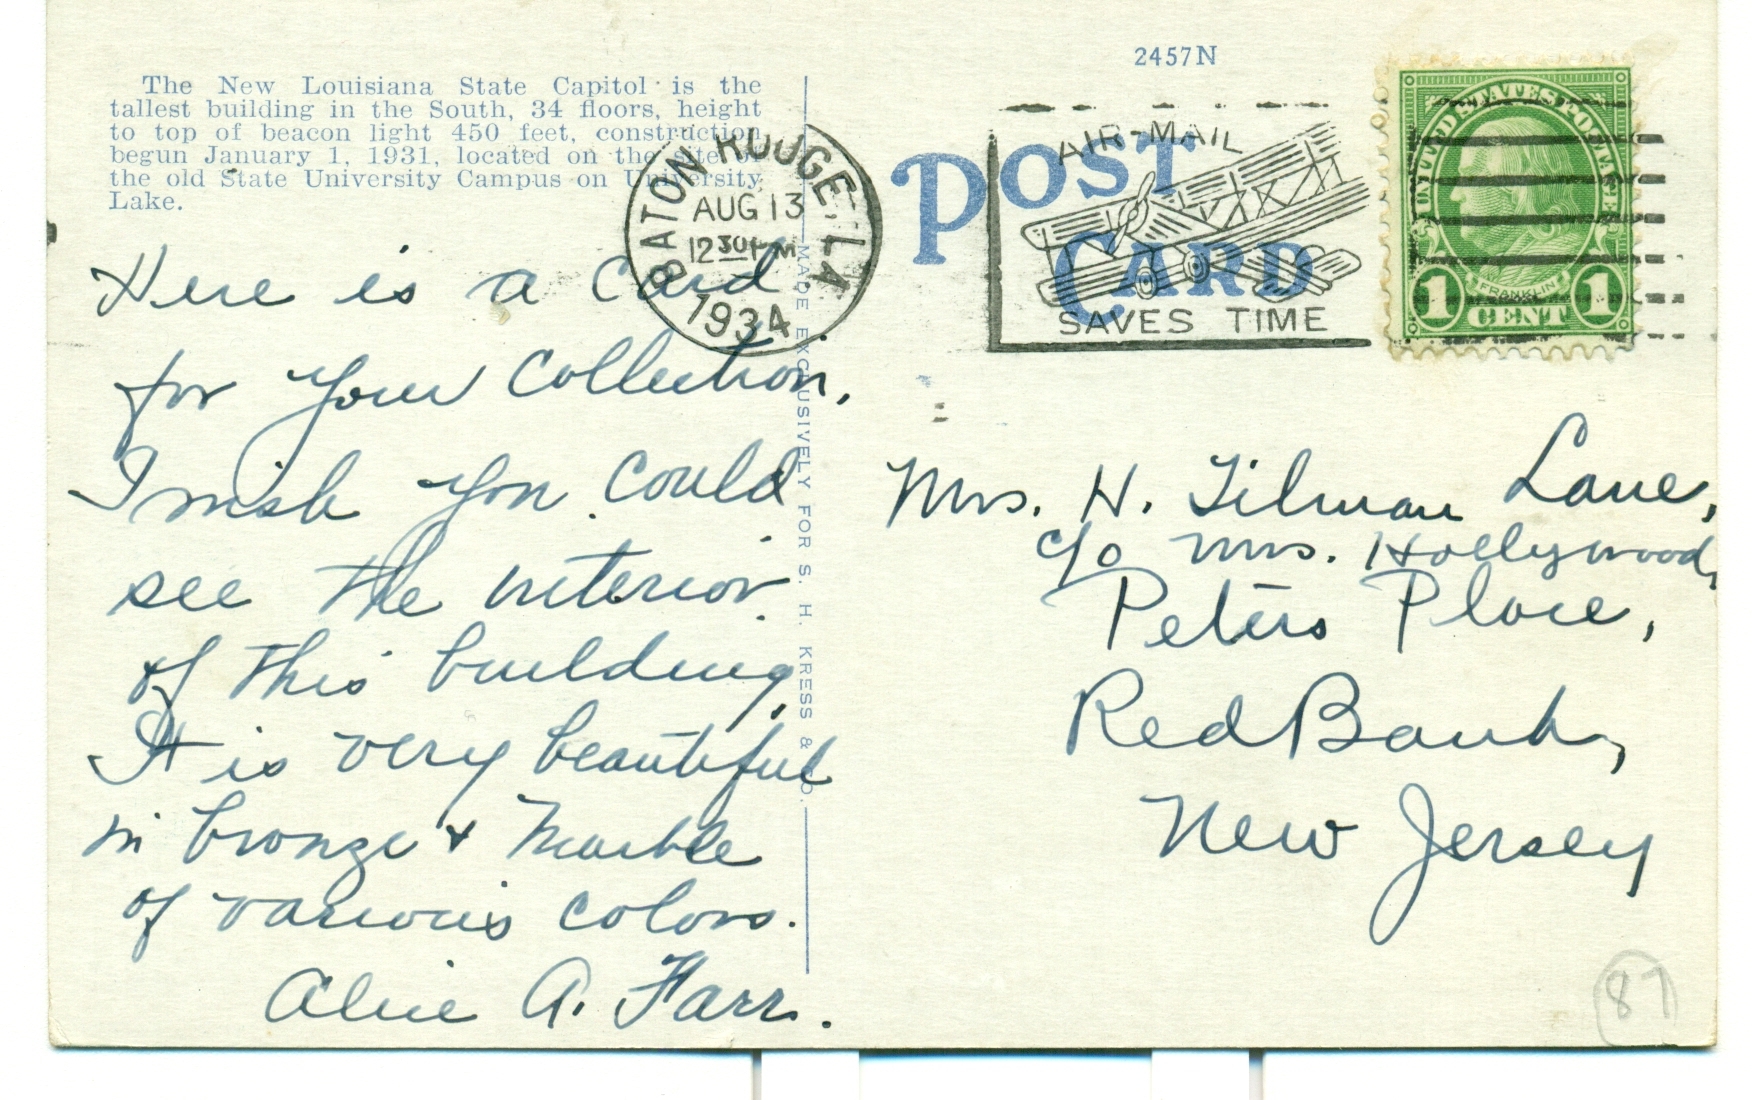 2457N
The New Louisiana State Capitol is the
tallest building in the South, 34 floors, height
to top of beacon light 450 feet, construction
begun January 1, 1931, located on the site of
the old State University Campus on University
Lake.
BATON ROUGE, LA
AUG 13
12 30 PM
1934
POST
CARD
AIR-MAIL
SAVES TIME
UNITED STATES POSTAGE
FRANKLIN
1 CENT 1
MADE EXCLUSIVELY FOR S. H. KRESS & CO.
Here is a card
for your collection.
I wish you could
see the interior
of this building.
It is very beautiful
in bronze & marble
of various colors.
Alice A. Farr.
Mrs. H. Tilman Lane,
c/o Mrs. Hollywood,
Peters Place,
Red Bank,
New Jersey
87